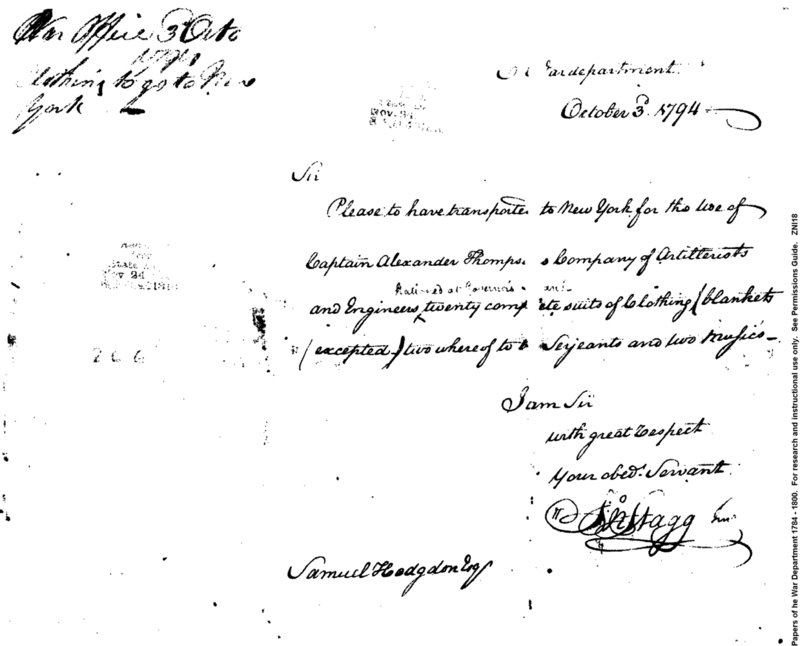 War Office 3 Octo
1794
Clothing to go to New
York
War department
October 3d. 1794
Sir
Please to have transported to New York for the use of
Captain Alexander Thompsons Company of Artillerists
Stationed at Governors
and Engineers, twenty complete suits of Clothing (blankets
(excepted) two whereof to be Serjeants and two Musics
I am Sir
with great Respect
Your obed. Servant
Jn Stagg Jun
Samuel Hodgdon Esq
Nov. 24
State
Nov 24
266
Papers of he War Department 1784 - 1800. For research and instructional use only. See Permissions Guide. ZNI18